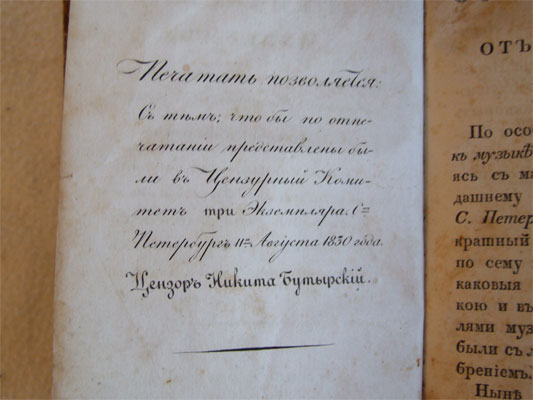 Печатать позволяется:
Съ тѣмъ; что бы по отпе-
чатаніи представлены бы-
ли въ Цензурный Коми-
тетъ три Экземпляра. С=
Петербургъ 11= Августа 1830 года.
Цензоръ Никита Бутырскій.
ОТЪ
По осо
къ музыкѣ
ясь съ ма
дашнему
С. Петер
кратный
по сему
каковыя
кою и въ
лями муз
были съ л
бреніемъ.
Нынѣ